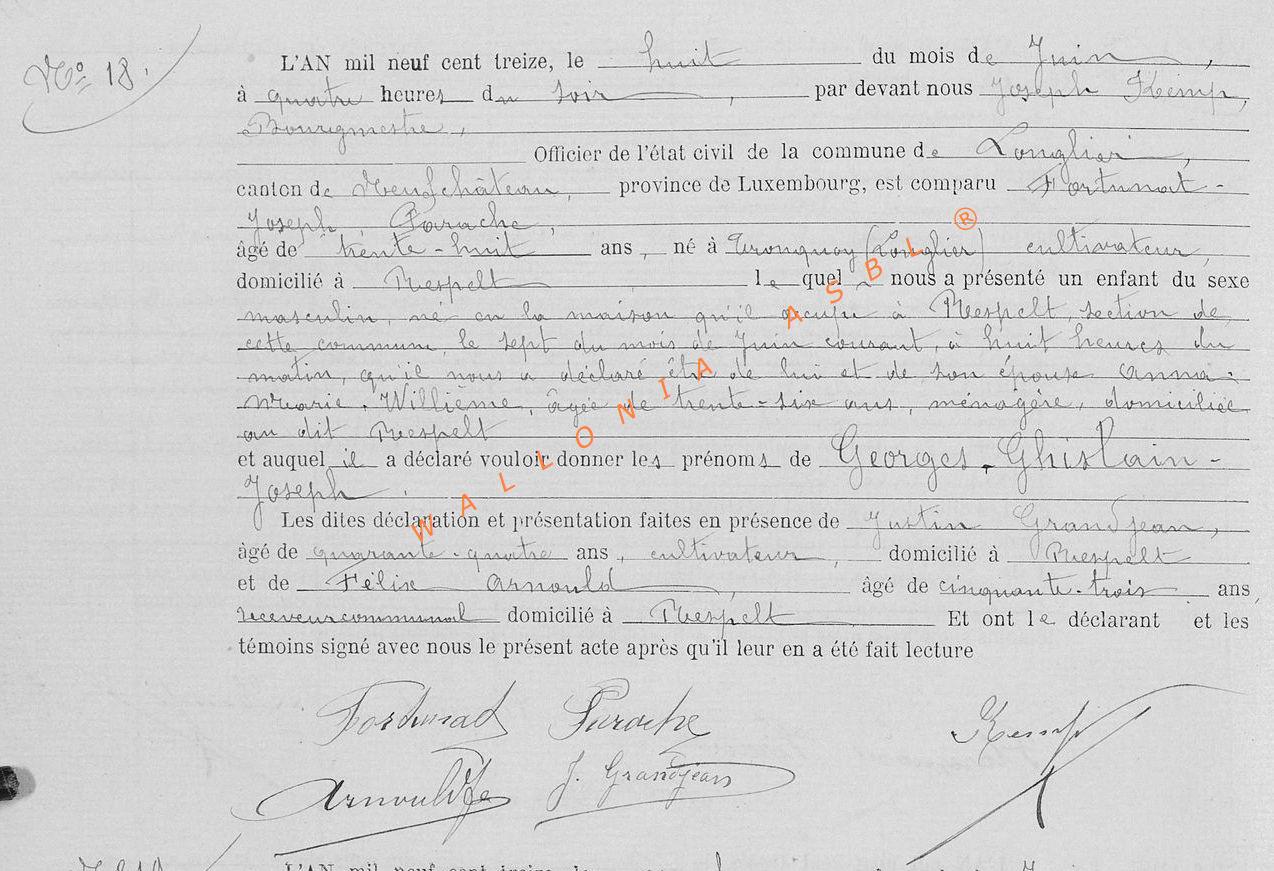 No 18.
L'AN mil neuf cent treize, le huit du mois de Juin,
à quatre heures du soir, par devant nous Joseph Kemp,
Bourgmestre,
Officier de l'état civil de la commune de Longlier,
canton de Neufchâteau, province de Luxembourg, est comparu Fortunat-
Joseph Paroche,
âgé de trente-huit ans, né à Tronquoy (Longlier) cultivateur,
domicilié à Respelt lequel nous a présenté un enfant du sexe
masculin, né en la maison qu'il occupe à Respelt, section de
cette commune, le sept du mois de Juin courant, à huit heures du
matin, qu'il nous a déclaré être de lui et de son épouse Anna-
Marie Willième, âgée de trente-six ans, ménagère, domiciliée
au dit Respelt
et auquel il a déclaré vouloir donner les prénoms de Georges-Ghislain-
Joseph.
Les dites déclaration et présentation faites en présence de Justin Grandjean,
âgé de quarante-quatre ans, cultivateur, domicilié à Respelt
et de Félix Arnould, âgé de cinquante-trois ans,
receveur communal domicilié à Respelt Et ont le déclarant et les
témoins signé avec nous le présent acte après qu'il leur en a été fait lecture
Fortunat Paroche Kemp
Arnould Fe J. Grandjean
L'AN mil neuf cent treize, le
WALLONIA ASBL ®